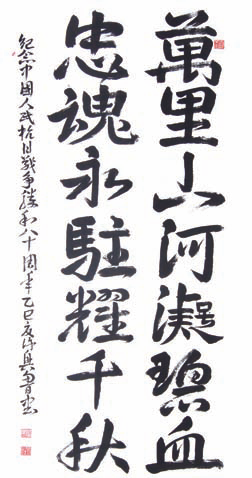 萬里山河凝碧血
忠魂永駐耀千秋
紀念中國人民抗日戰爭勝利八十周年乙巳夏許興雷書